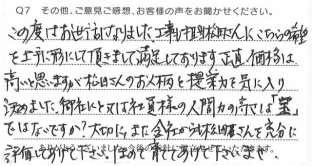 Q7 その他、ご意見ご感想、お客様の声をお聞かせください。
この度はお世話になりました 工事担当松田さんにこちらの希望
を上手に形にして頂きまして満足しております 正直、価格は
高いと思いますが松田さんのお人柄と提案力を気に入り
決めました。御社にとっては社員様の人間力の高さは「宝」
ではないですか？大切に。また会社から松田さんを充分に
評価してあげて下さい。ほめて育ててあげて下さいませ。